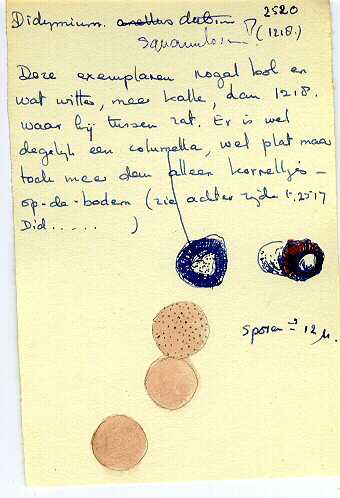 Didymium. anellus dubium 2520
squamulosum? (1218.)
Deze exemplaren nogal bol en
wat witter, meer kalk, dan 1218.
waar hij tussen zat. Er is wel
degelijk een columella, wel plat maar
toch meer dan alleen korreltjes-
op-de-bodem (zie achterzijde 2517
Did...... )
sporen 12 µ.